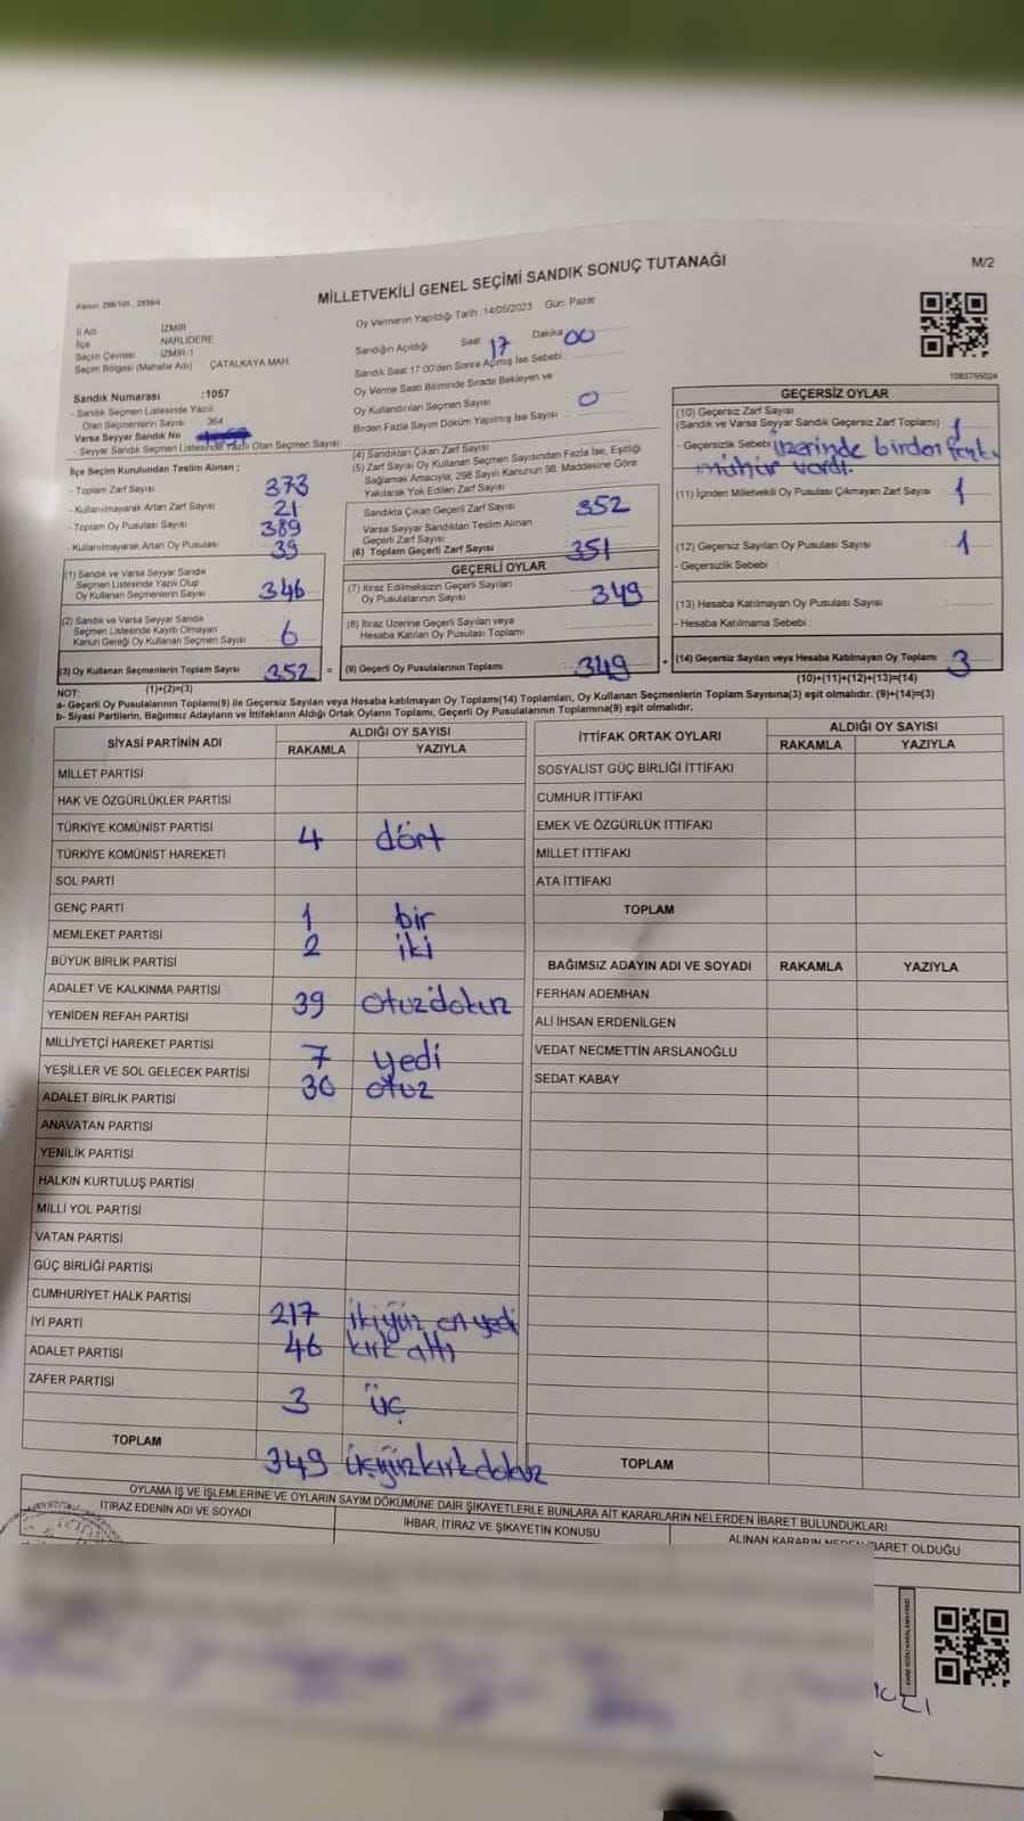 MİLLETVEKİLİ GENEL SEÇİMİ SANDIK SONUÇ TUTANAĞI
M/2
İl Adı İZMİR
İlçe NARLIDERE
Seçim Çevresi İZMİR-1
Seçim Bölgesi (Mahalle Adı) ÇATALKAYA MAH.
Oy Vermenin Yapıldığı Tarih :14/05/2023 Gün: Pazar
Sandığın Açıldığı Saat 17 Dakika 00
Sandık Saat 17:00'den Sonra Açılmış İse Sebebi
Oy Verme Saati Bitiminde Sırada Bekleyen ve
Oy Kullandırılan Seçmen Sayısı 0
Birden Fazla Sayım Döküm Yapılmış İse Sayısı
Sandık Numarası :1057
- Sandık Seçmen Listesinde Yazılı
Olan Seçmenlerin Sayısı 364
Varsa Seyyar Sandık No
- Seyyar Sandık Seçmen Listesinde Yazılı Olan Seçmen Sayısı
İlçe Seçim Kurulundan Teslim Alınan ;
- Toplam Zarf Sayısı 373
- Kullanılmayarak Artan Zarf Sayısı 21
- Toplam Oy Pusulası Sayısı 389
- Kullanılmayarak Artan Oy Pusulası 39
(1) Sandık ve Varsa Seyyar Sandık
Seçmen Listesinde Yazılı Olup
Oy Kullanan Seçmenlerin Sayısı 346
(2) Sandık ve Varsa Seyyar Sandık
Seçmen Listesinde Kayıtlı Olmayan
Kanun Gereği Oy Kullanan Seçmen Sayısı 6
(3) Oy Kullanan Seçmenlerin Toplam Sayısı 352 =
(1)+(2)=(3)
(4) Sandıktan Çıkan Zarf Sayısı
(5) Zarf Sayısı Oy Kullanan Seçmen Sayısından Fazla İse, Eşitliği
Sağlamak Amacıyla, 298 Sayılı Kanunun 98. Maddesine Göre
Yakılarak Yok Edilen Zarf Sayısı
Sandıkta Çıkan Geçerli Zarf Sayısı 352
Varsa Seyyar Sandıktan Teslim Alınan
Geçerli Zarf Sayısı
(6) Toplam Geçerli Zarf Sayısı 351
GEÇERLİ OYLAR
(7) İtiraz Edilmeksizin Geçerli Sayılan
Oy Pusulalarının Sayısı 349
(8) İtiraz Üzerine Geçerli Sayılan veya
Hesaba Katılan Oy Pusulası Toplamı
(9) Geçerli Oy Pusulalarının Toplamı 349 +
GEÇERSİZ OYLAR
(10) Geçersiz Zarf Sayısı
(Sandık ve Varsa Seyyar Sandık Geçersiz Zarf Toplamı) 1
- Geçersizlik Sebebi üzerinde birden
mühür vardı.
(11) İçinden Milletvekili Oy Pusulası Çıkmayan Zarf Sayısı 1
(12) Geçersiz Sayılan Oy Pusulası Sayısı 1
- Geçersizlik Sebebi :
(13) Hesaba Katılmayan Oy Pusulası Sayısı
- Hesaba Katılmama Sebebi :
(14) Geçersiz Sayılan veya Hesaba Katılmayan Oy Toplamı 3
(10)+(11)+(12)+(13)=(14)
NOT:
a- Geçerli Oy Pusulalarının Toplamı(9) ile Geçersiz Sayılan veya Hesaba katılmayan Oy Toplamı(14) Toplamları, Oy Kullanan Seçmenlerin Toplam Sayısına(3) eşit olmalıdır. (9)+(14)=(3)
b- Siyasi Partilerin, Bağımsız Adayların ve İttifakların Aldığı Ortak Oyların Toplamı, Geçerli Oy Pusulalarının Toplamına(9) eşit olmalıdır.
SİYASİ PARTİNİN ADI ALDIĞI OY SAYISI
RAKAMLA YAZIYLA
MİLLET PARTİSİ
HAK VE ÖZGÜRLÜKLER PARTİSİ
TÜRKİYE KOMÜNİST PARTİSİ 4 dört
TÜRKİYE KOMÜNİST HAREKETİ
SOL PARTİ
GENÇ PARTİ 1 bir
MEMLEKET PARTİSİ 2 iki
BÜYÜK BİRLİK PARTİSİ
ADALET VE KALKINMA PARTİSİ 39 otuzdokuz
YENİDEN REFAH PARTİSİ
MİLLİYETÇİ HAREKET PARTİSİ 7 yedi
YEŞİLLER VE SOL GELECEK PARTİSİ 30 otuz
ADALET BİRLİK PARTİSİ
ANAVATAN PARTİSİ
YENİLİK PARTİSİ
HALKIN KURTULUŞ PARTİSİ
MİLLİ YOL PARTİSİ
VATAN PARTİSİ
GÜÇ BİRLİĞİ PARTİSİ
CUMHURİYET HALK PARTİSİ 217 ikiyüz on yedi
İYİ PARTİ 46 kırk altı
ADALET PARTİSİ
ZAFER PARTİSİ 3 üç
TOPLAM 349 üçyüzkırkdokuz
İTTİFAK ORTAK OYLARI ALDIĞI OY SAYISI
RAKAMLA YAZIYLA
SOSYALİST GÜÇ BİRLİĞİ İTTİFAKI
CUMHUR İTTİFAKI
EMEK VE ÖZGÜRLÜK İTTİFAKI
MİLLET İTTİFAKI
ATA İTTİFAKI
TOPLAM
BAĞIMSIZ ADAYIN ADI VE SOYADI RAKAMLA YAZIYLA
FERHAN ADEMHAN
ALİ İHSAN ERDENİLGEN
VEDAT NECMETTİN ARSLANOĞLU
SEDAT KABAY
TOPLAM
OYLAMA İŞ VE İŞLEMLERİNE VE OYLARIN SAYIM DÖKÜMÜNE DAİR ŞİKAYETLERLE BUNLARA AİT KARARLARIN NELERDEN İBARET BULUNDUKLARI
İTİRAZ EDENİN ADI VE SOYADI
İHBAR, İTİRAZ VE ŞİKAYETİN KONUSU
ALINAN KARARIN NEDEN İBARET OLDUĞU